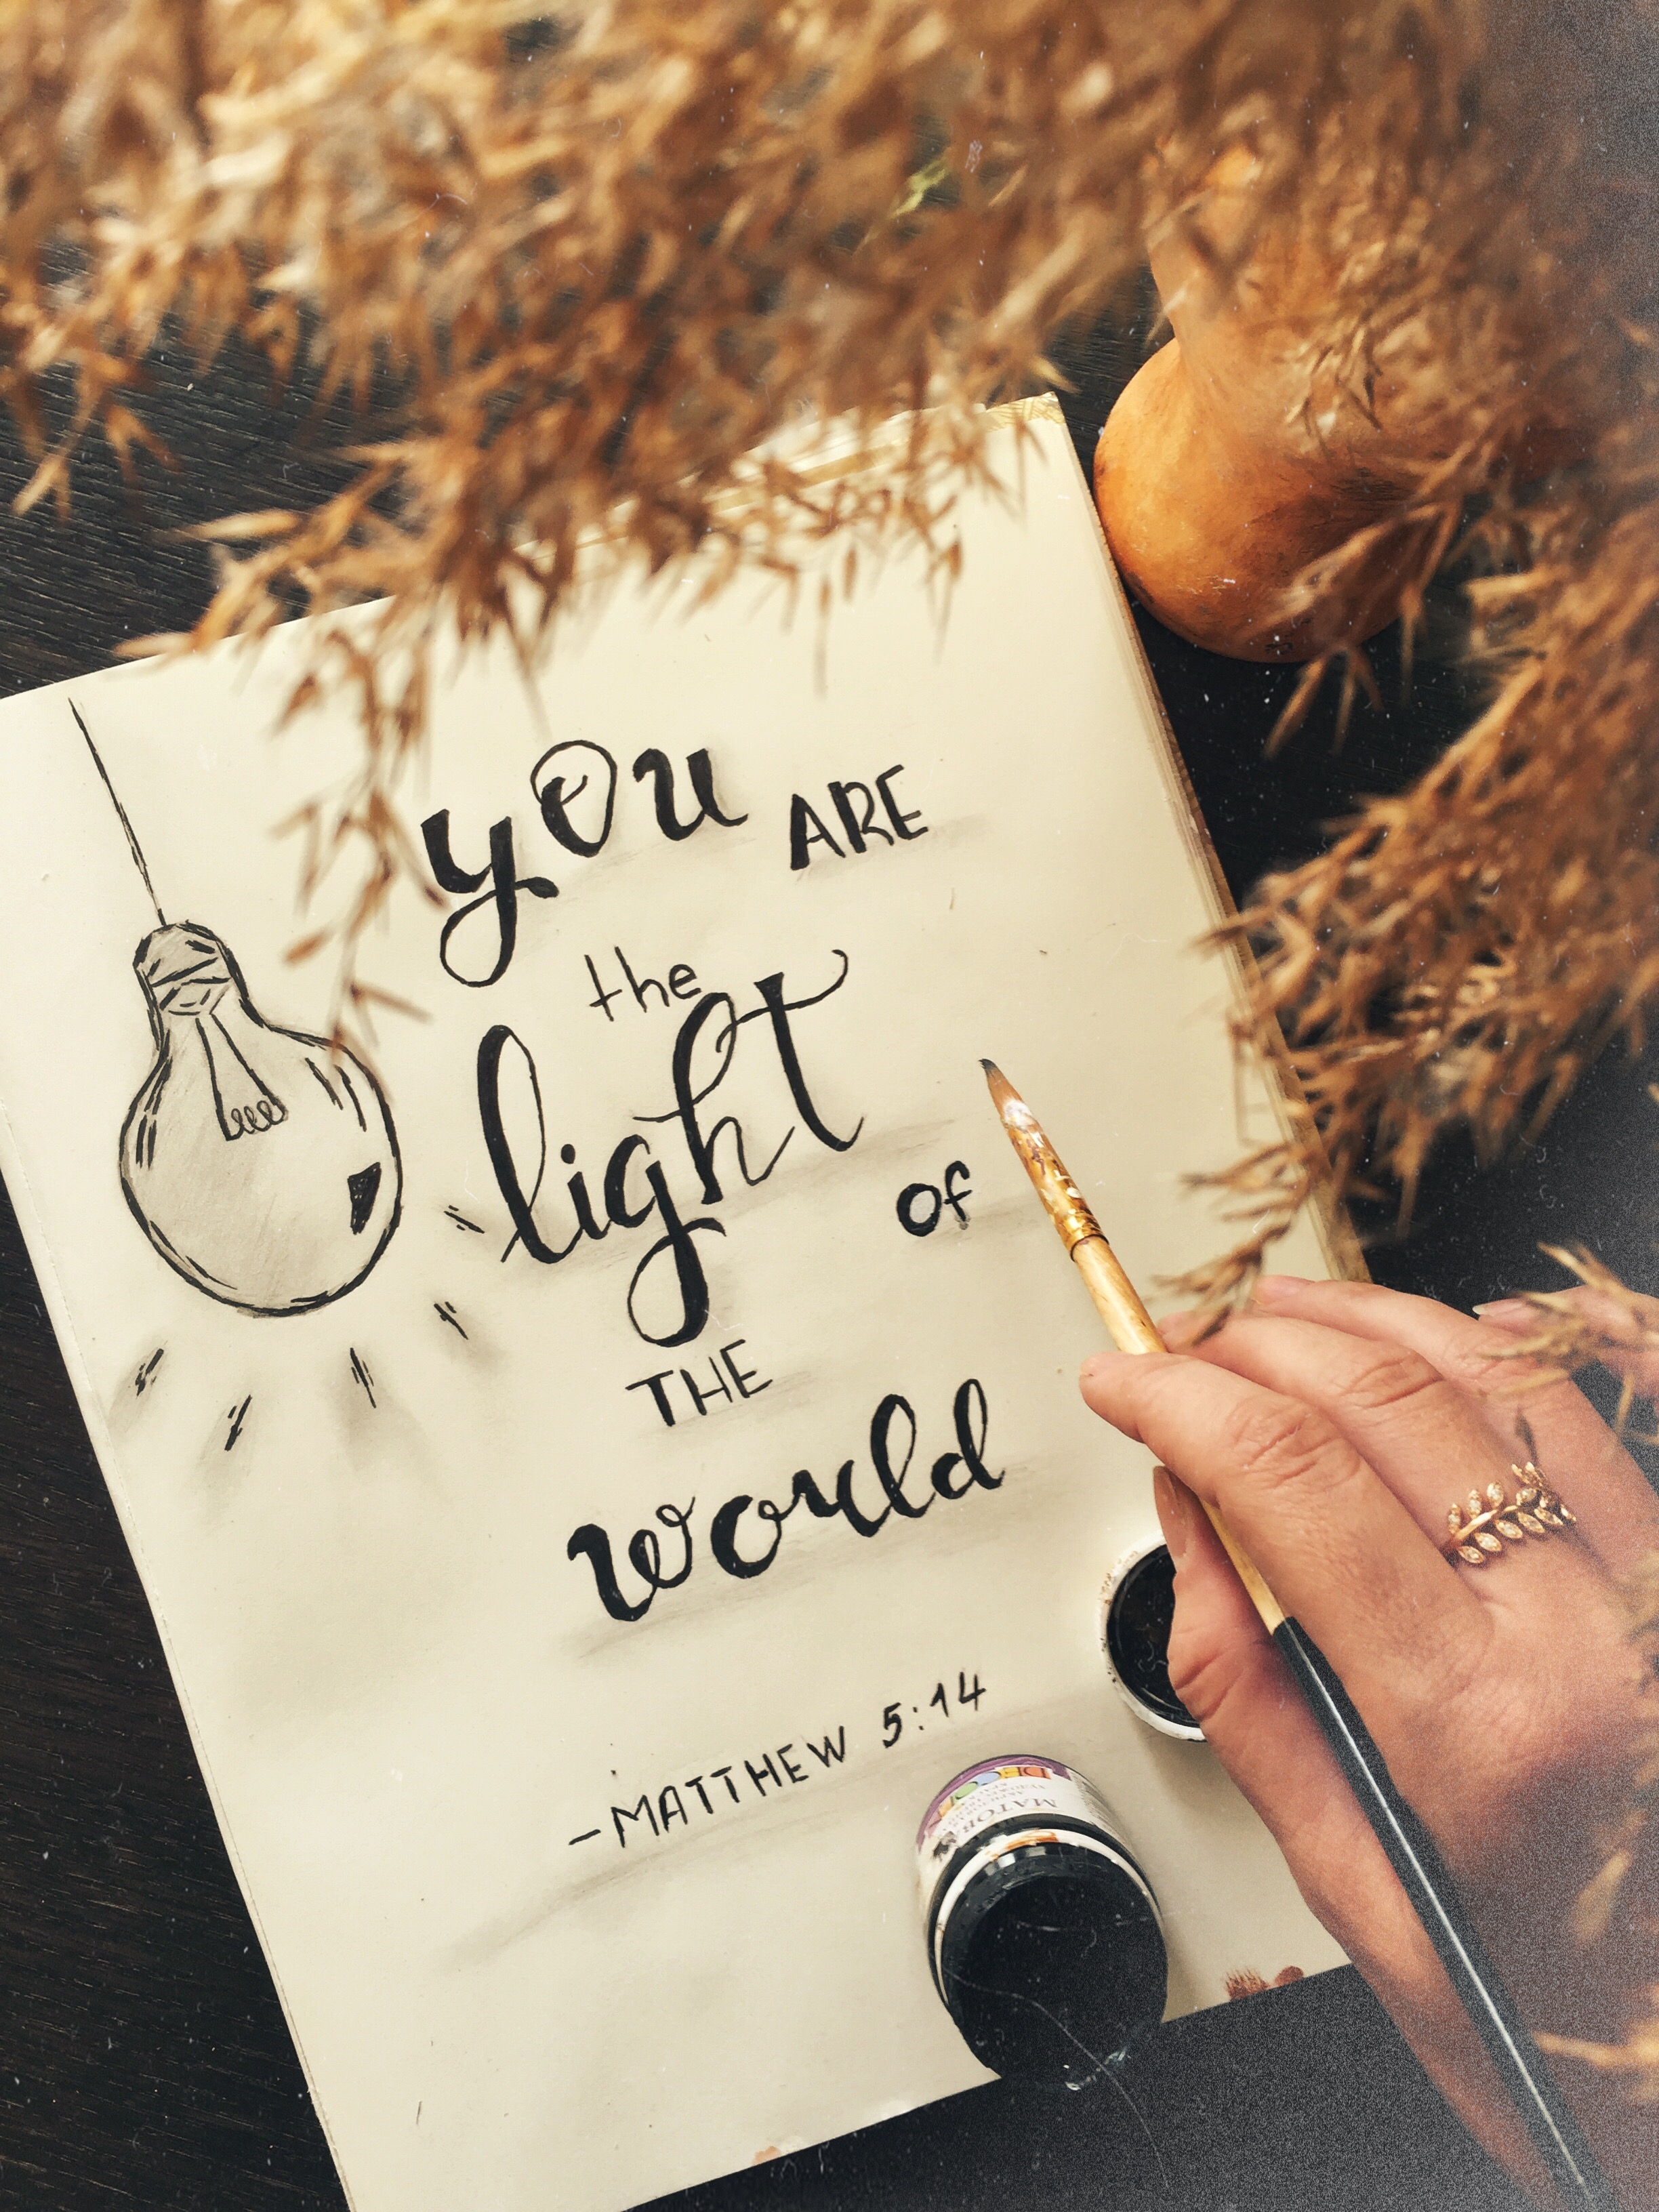 you ARE
the
light
of
THE
world
-MATTHEW 5:14
DECOR
MATOR